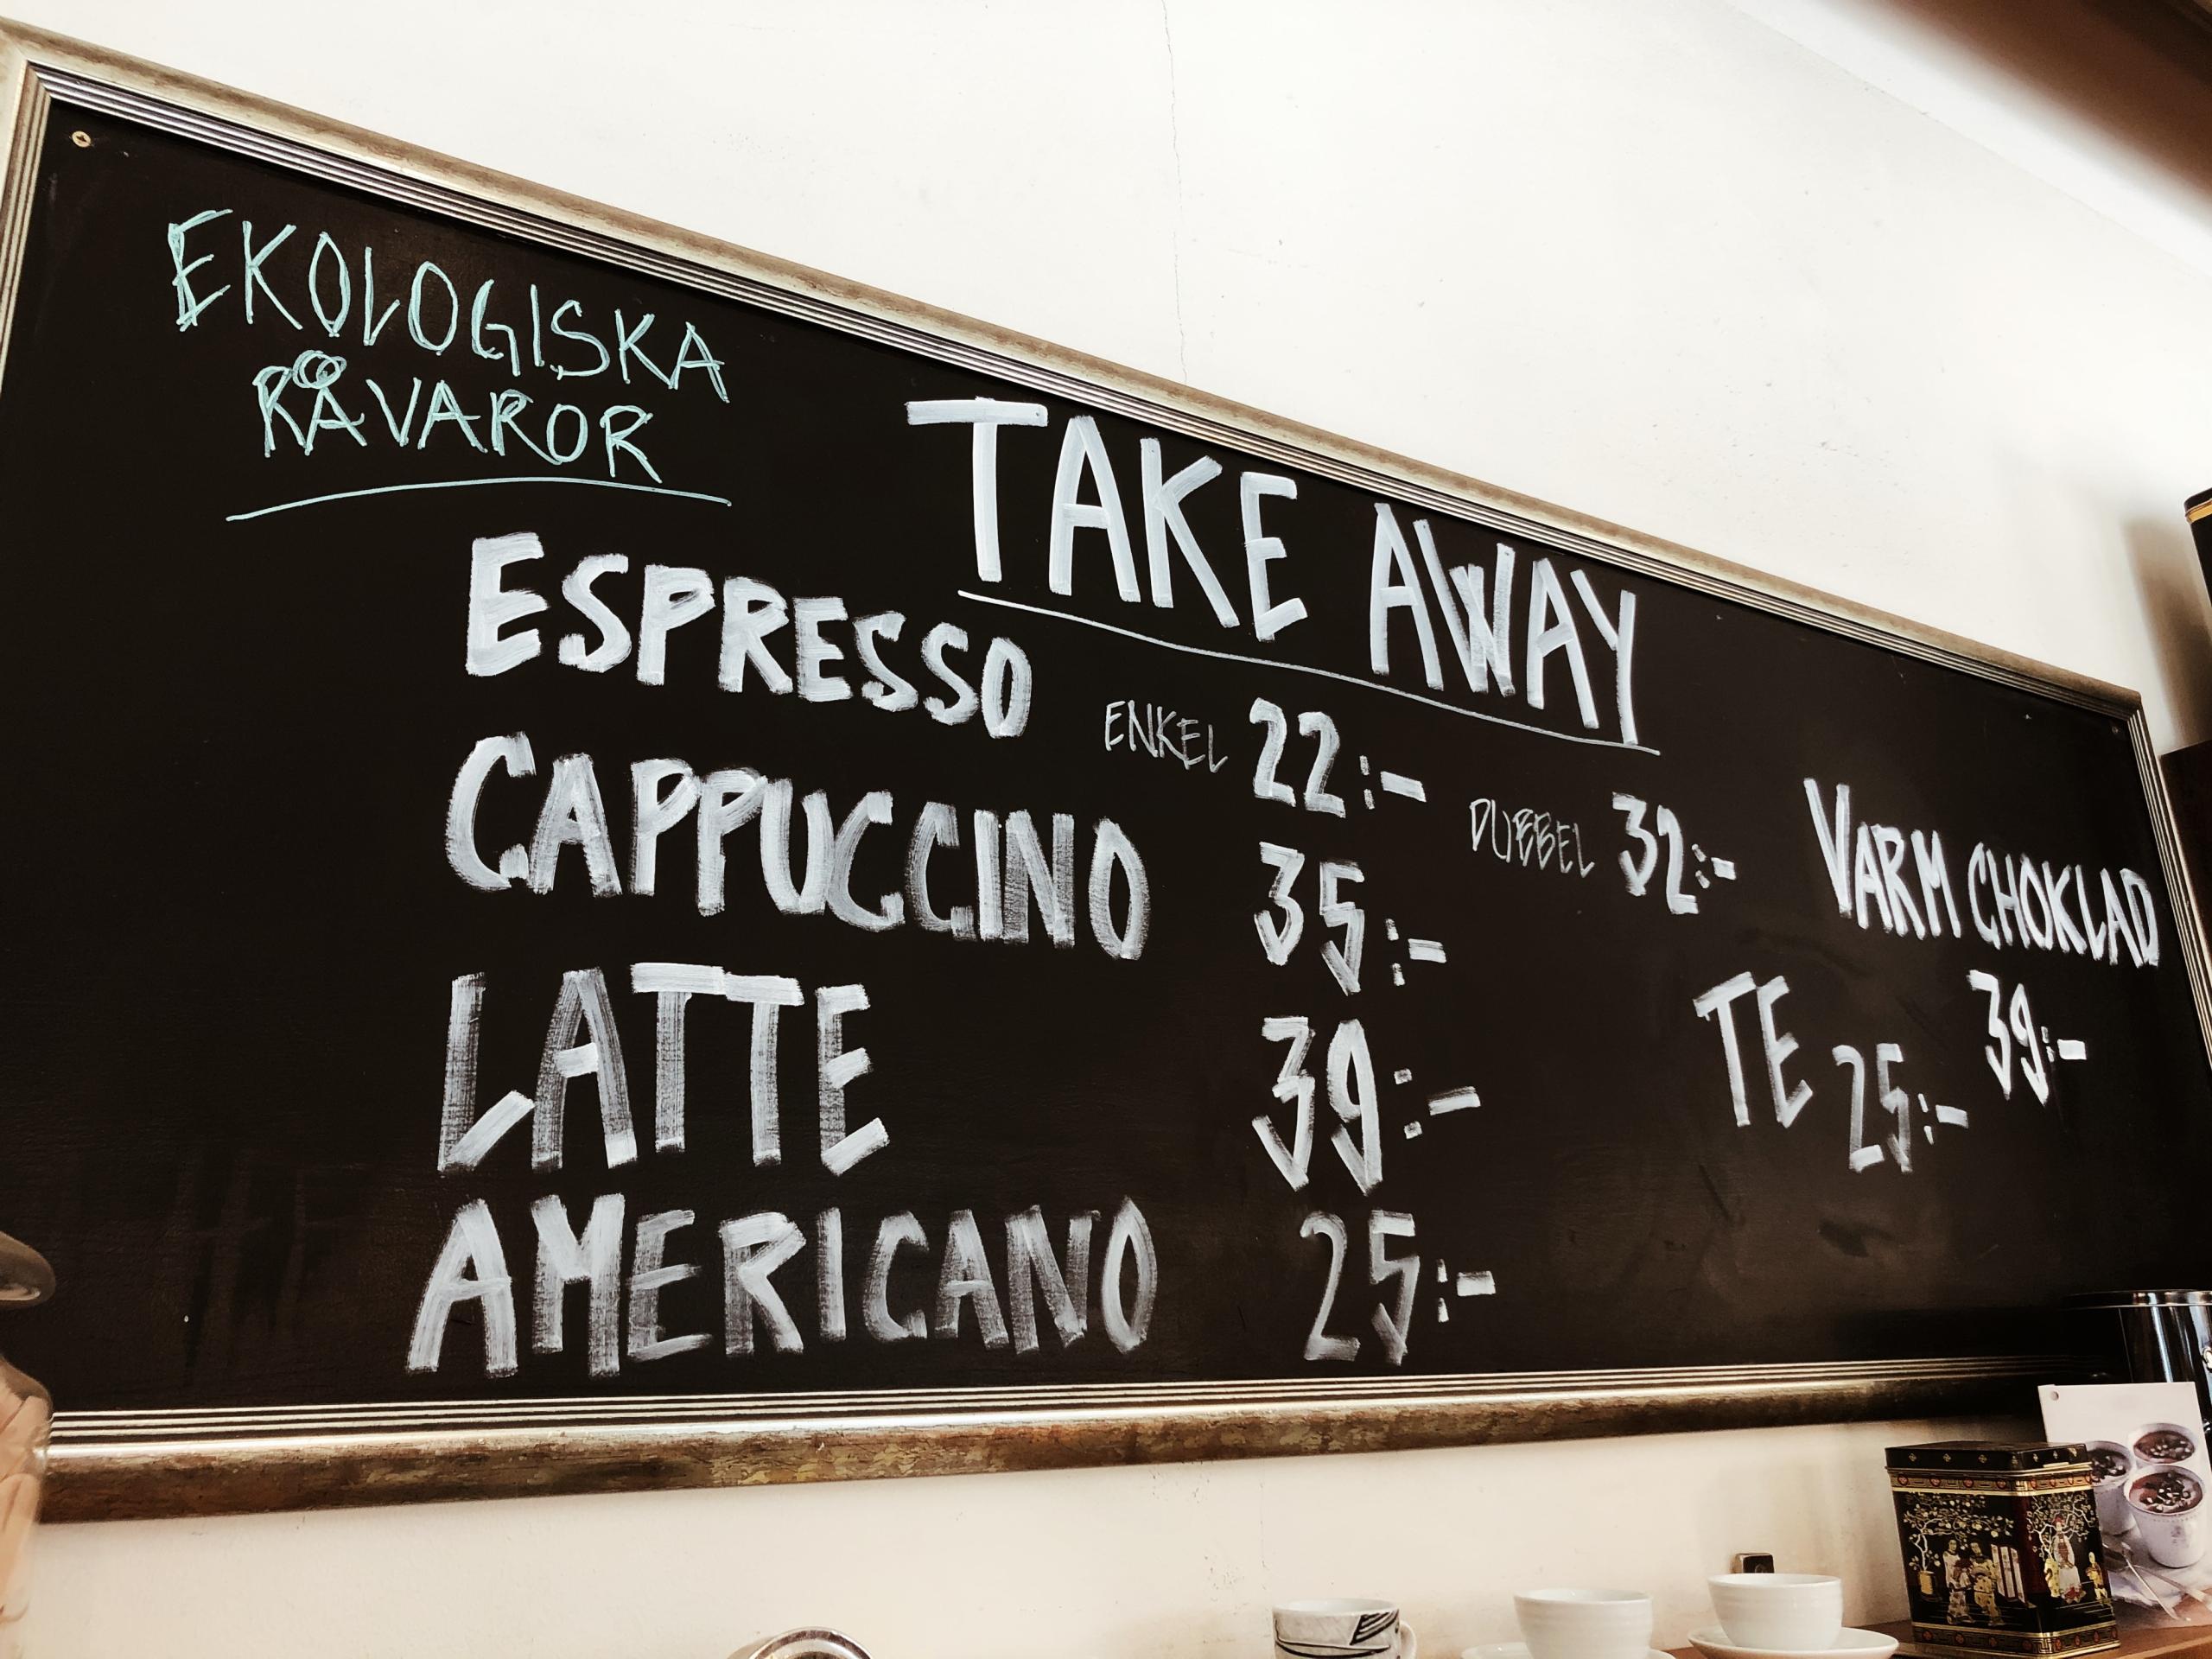 EKOLOGISKA
RÅVAROR
TAKE AWAY
ESPRESSO ENKEL 22:- DUBBEL 32:-
CAPPUCCINO 35:-
LATTE 39:-
AMERICANO 25:-
VARM CHOKLAD
39:-
TE 25:-